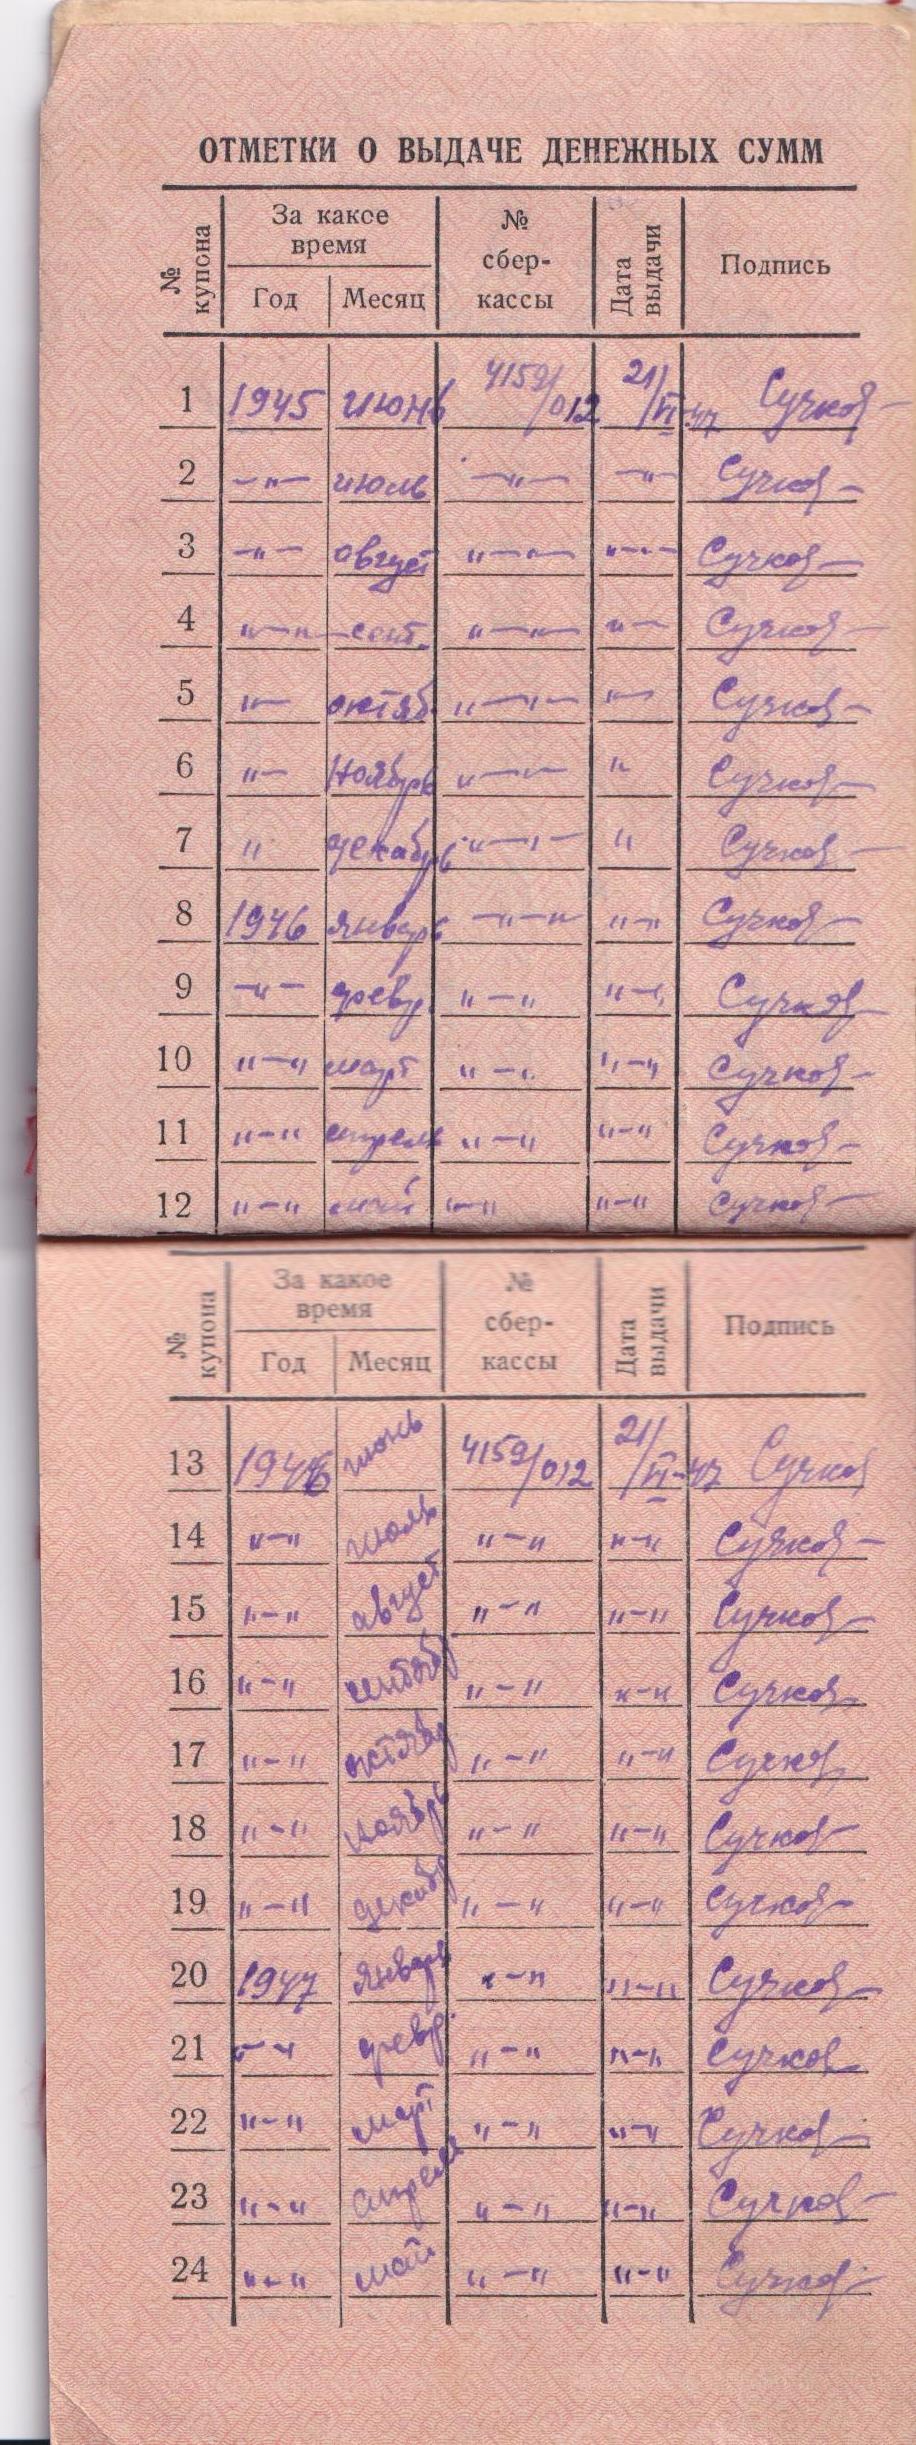 ОТМЕТКИ О ВЫДАЧЕ ДЕНЕЖНЫХ СУММ
№ купона За какое время № сбер-кассы Дата выдачи Подпись
Год Месяц
1 1945 июнь 4159/012 21/VI-47 Сучков
2 -"- июль -"- -"- Сучков
3 -"- август "-"- "-"- Сучков
4 "-"- сент. "-"- "- Сучков
5 "- октяб. "-"- "- Сучков
6 "- Ноябрь "-- " Сучков
7 " декабрь "-"- " Сучков
8 1946 январь -"-" "-" Сучков
9 -"- февр. "-" "-" Сучков
10 "-" март "-" "-" Сучков
11 "-" апрель "-" "-" Сучков
12 "-" май "-" "-" Сучков
№ купона За какое время № сбер-кассы Дата выдачи Подпись
Год Месяц
13 1946 июнь 4159/012 21/VI-47 Сучков
14 "-" июль "-" "-" Сучков
15 "-" август "-" "-" Сучков
16 "-" сентябр. "-" "-" Сучков
17 "-" октябр "-" "-" Сучков
18 "-" ноябрь "-" "-" Сучков
19 "-" декабр "-" "-" Сучков
20 1947 январь "-" "-" Сучков
21 "-" февр. "-" "-" Сучков
22 "-" март "-" "-" Сучков
23 "-" апрель "-" "-" Сучков
24 "-" май "-" "-" Сучков